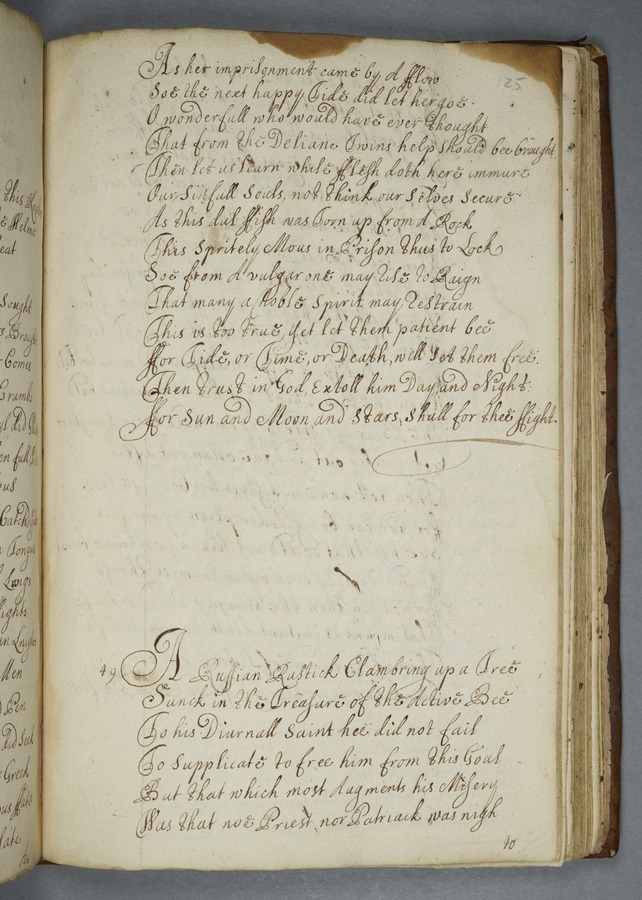 125
As her imprisonment came by a fflow
Soe the next happy Tide did let her goe
O wonderfull who would have ever thought
That from the Deliane Twins help should bee brought
Then let us learn while fflesh doth here immure
Our sinfull Souls, not think our selves secure
As this dul ffish was Torn up from a Rock
This Spritely Mous in Prison thus to Lock
Soe from a vulgar one may rise to Raign
That many a Noble Spirit may restrain
This is too true yet let them patient bee
ffor Tide, or Time, or Death, will set them free
Then trust in God, Extoll him Day and Night:
ffor Sun and Moon and Stars, shall for thee ffight.
49 A Russian Rustick Clambring up a Tree
Sunck in the Treasure of the Active Bee
To his Diurnall Saint hee did not fail
To supplicate to free him from this Goal
But that which most augments his Misery
Was that noe Priest, nor Patriack was nigh
To